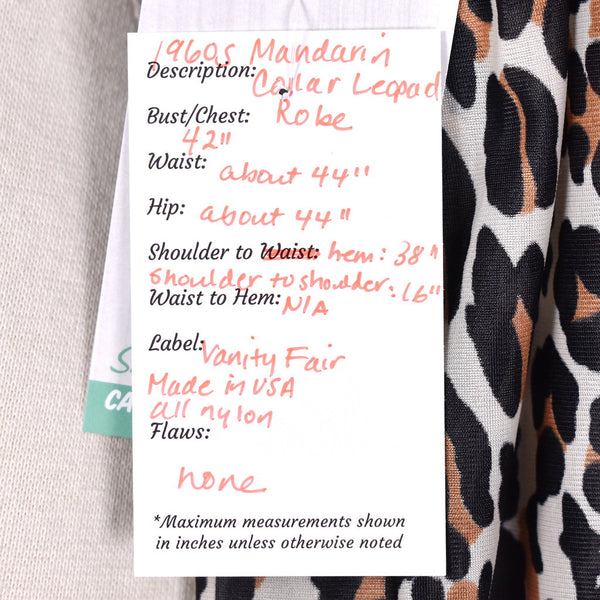 1960s Mandarin
Description: Collar Leopad
Bust/Chest: Robe
42"
Waist: about 44"
Hip: about 44"
Shoulder to Waist: hem: 38"
Shoulder to shoulder: 16"
Waist to Hem: N/A
Label: Vanity Fair
Made in USA
all nylon
Flaws:
none
*Maximum measurements shown
in inches unless otherwise noted
CA